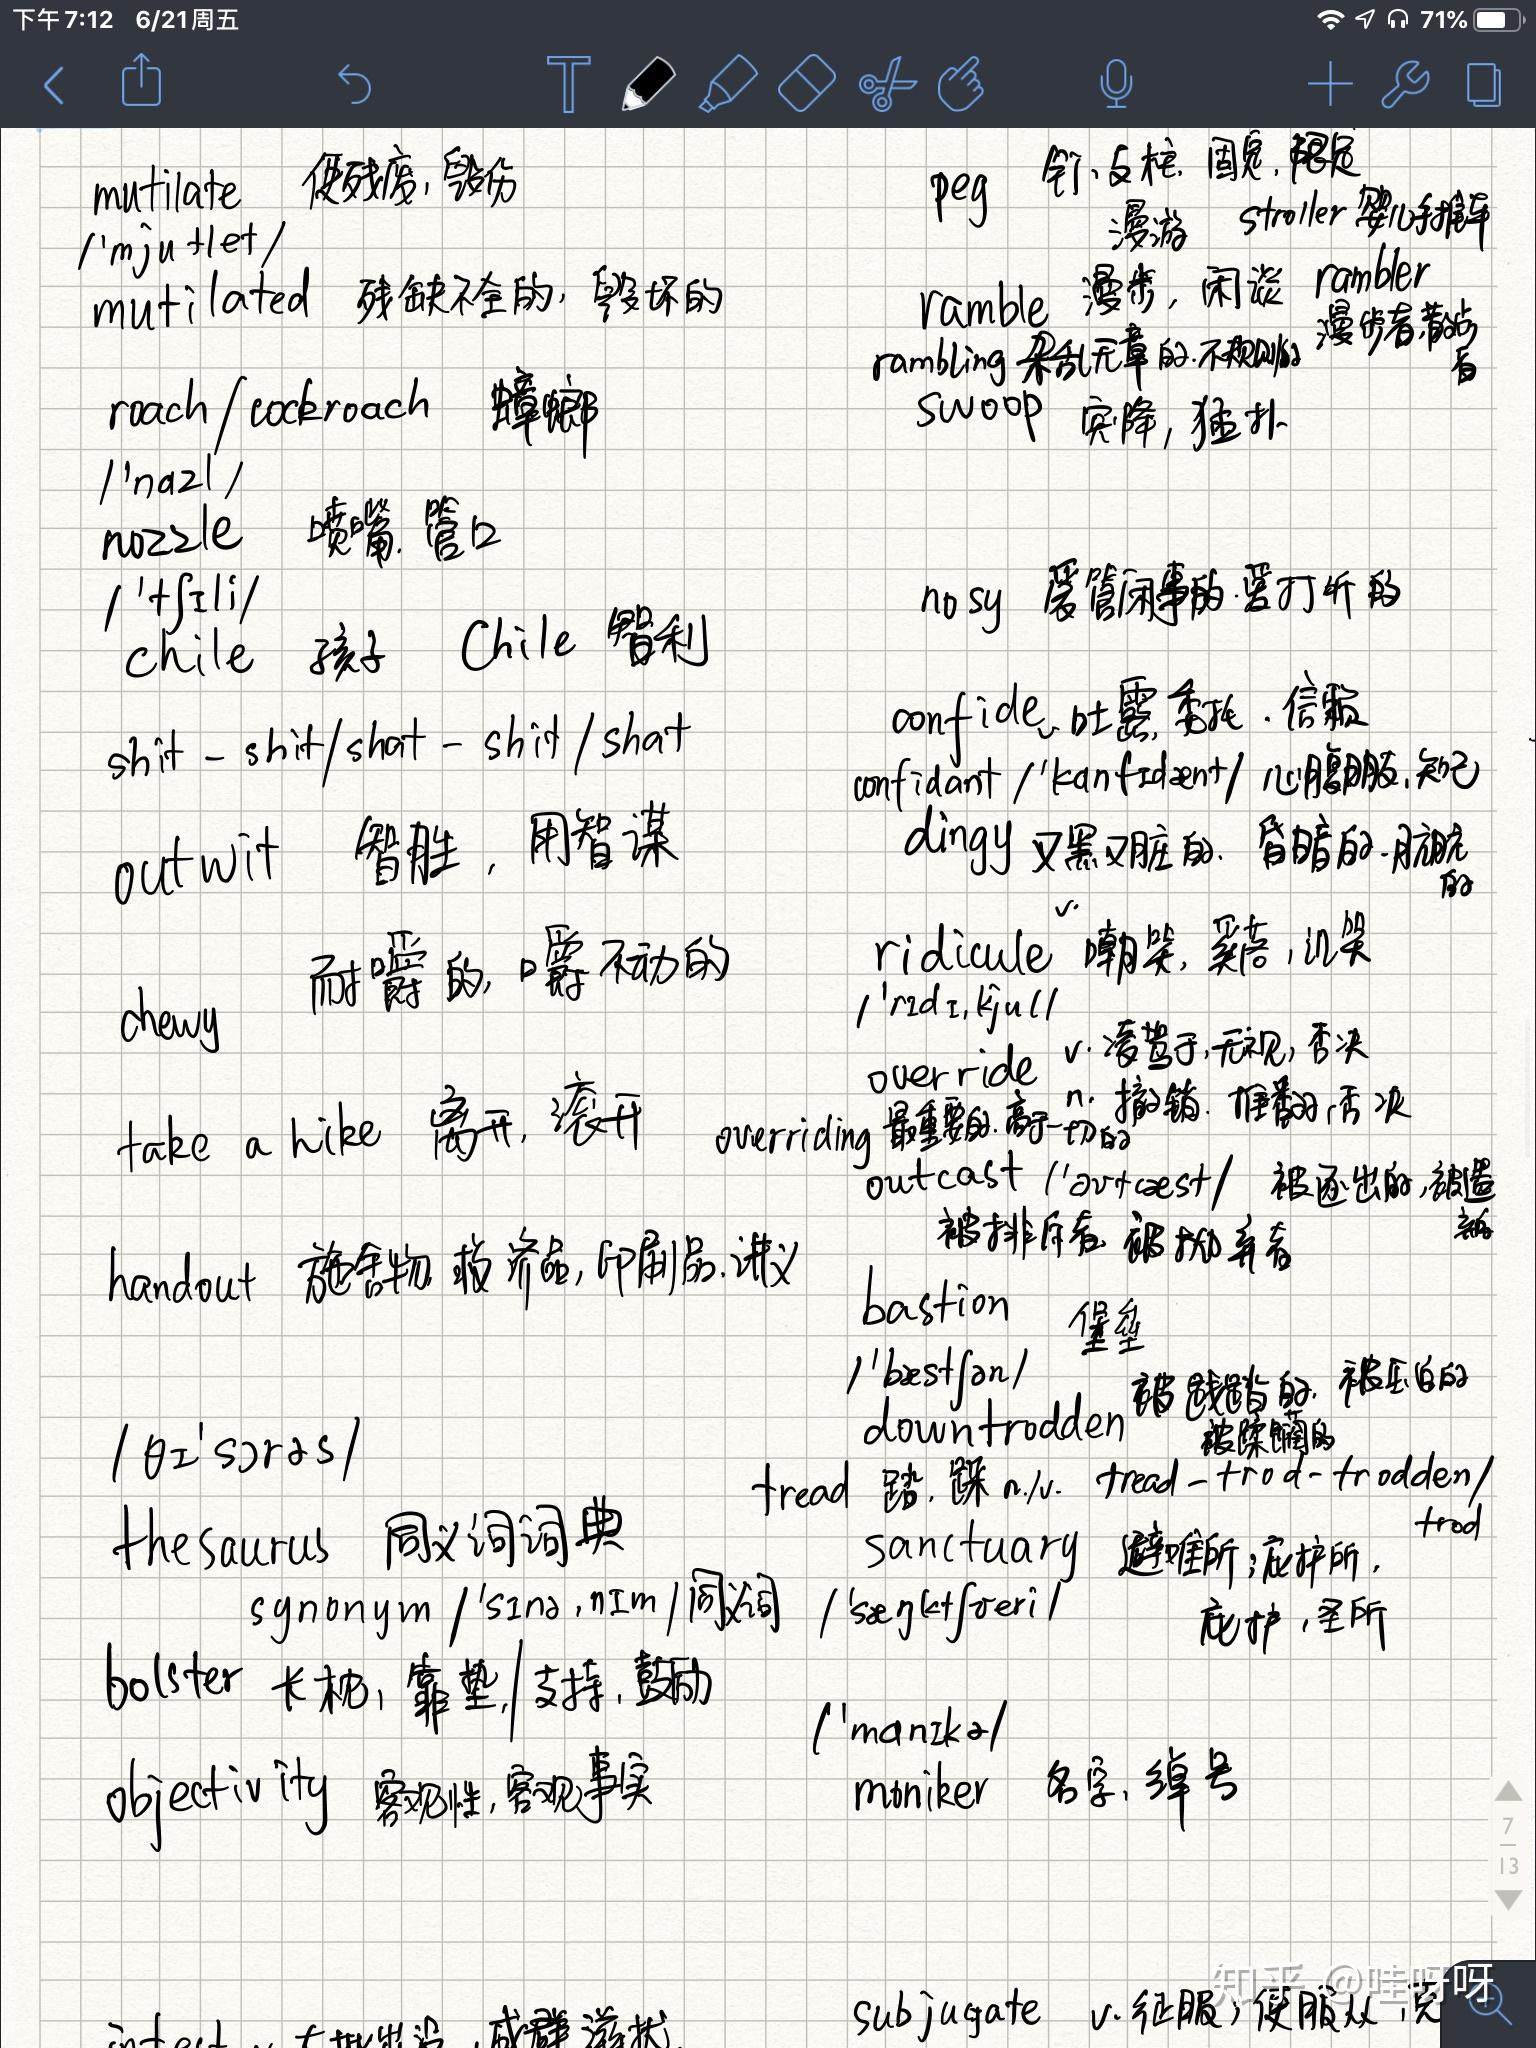 下午7:12 6/21周五
71%
mutilate 使残废,毁伤
/'mjutlet/
mutilated 残缺不全的,毁坏的
roach/cockroach 蟑螂
/'nazl/
nozzle 喷嘴.管口
/'tʃɪli/
chile 孩子 Chile 智利
shit - shit/shat - shit/shat
outwit 智胜,用智谋
耐嚼的,嚼不动的
chewy
take a hike 离开,滚开
handout 施舍物,救济品,印刷品.讲义
/θɪ'sɔrəs/
thesaurus 同义词词典
synonym /'sɪnə,nɪm/同义词
bolster 长枕,靠垫,/支持,鼓励
objectivity 客观性,客观事实
peg 钉、支柱.固定,限定
漫游 stroller 婴儿手推车
ramble 漫步,闲谈 rambler
漫步者,散步者
rambling 杂乱无章的.不规则的
swoop 突降,猛扑
nosy 爱管闲事的.爱打听的
confide v.吐露,委托.信赖
confidant /'kanfɪdænt/ 心腹朋友,知己
dingy 又黑又脏的.昏暗的.肮脏的
v.
ridicule 嘲笑,奚落,讥笑
/'rɪdɪ,kjul/
override v.凌驾于,无视,否决
n.撤销.推翻,否决
overriding 最重要的.高于一切的
outcast /'aʊtcæst/ 被逐出的,被遗弃的
被排斥者,被抛弃者
bastion 堡垒
/'bæstʃən/
被践踏的.被压迫的
downtrodden 被蹂躏的
tread 踏,踩 n./v. tread-trod-trodden/
trod
sanctuary 避难所;庇护所,
/'sæŋktʃʊeri/ 庇护,圣所
/'manɪkə/
moniker 名字,绰号
7
13
subjugate v.征服;使服从,
知乎 @哇呀呀